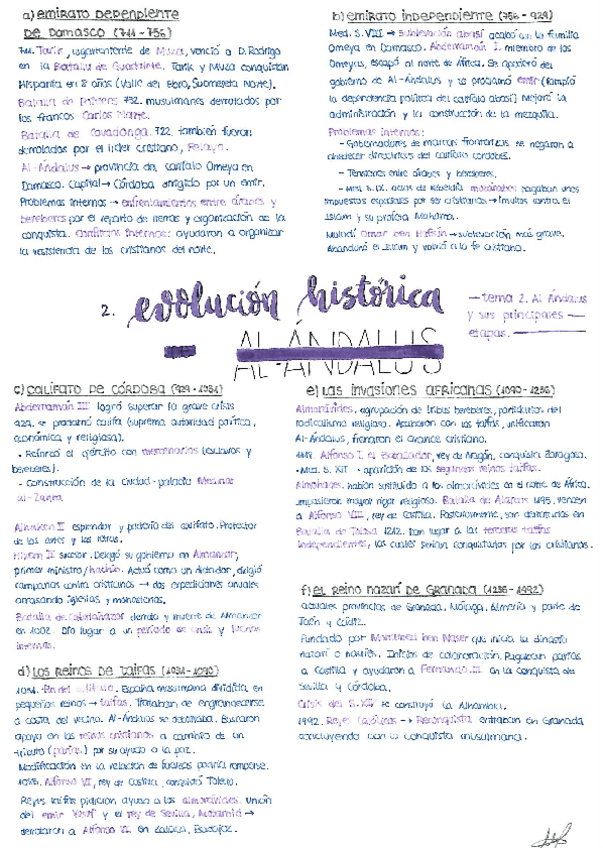 a) EMIRATO DEPENDIENTE
DE DAMASCO (711 - 756)
711. Tarik, lugarteniente de Muza, venció a D. Rodrigo
en la Batalla de Guadalete. Tarik y Muza conquistan
Hispania en 8 años (Valle del Ebro, Submeseta Norte).
Batalla de Poitiers 732. musulmanes derrotados por
los francos Carlos Martel.
Batalla de Covadonga. 722 también fueron
derrotados por el líder cristiano, Pelayo.
Al-Ándalus → provincia del califato Omeya en
Damasco. Capital → Córdoba dirigido por un emir.
Problemas internos → enfrentamientos entre árabes y
bereberes por el reparto de tierras y organización de la
conquista. Conflictos internos: ayudaron a organizar
la resistencia de los cristianos del norte.
b) EMIRATO INDEPENDIENTE (756 - 929)
Med. S. VIII → sublevación abasí acabó con la familia
Omeya en Damasco. Abderramán I, miembro de los
Omeyas, escapó al norte de África. Se apoderó del
gobierno de Al-Ándalus y se proclamó emir (rompió
la dependencia política del califato abasí) Mejoró la
administración y la construcción de la mezquita.
Problemas internos:
- Gobernadores de marcas fronterizas se negaron a
obedecer directrices del califato cordobés.
- Tensiones entre árabes y bereberes.
- Med. S. IX. rebeldía mozárabes pagaban unos
impuestos especiales por ser cristianos → insultos contra el
Islam y su profeta Mahoma.
Muladí Omar ben Hafsún → sublevación más grave.
Abandonó el Islam y volvió a la fe cristiana.
2. evolución histórica
AL-ÁNDALUS
— Tema 2. Al-Ándalus
y sus principales —
etapas. —
c) CALIFATO DE CÓRDOBA (929 - 1031)
Abderramán III logró superar la grave crisis
929. se proclamó califa (suprema autoridad política,
económica y religiosa).
- Reforzó el ejército con mercenarios (esclavos y
bereberes).
- Construcción de la ciudad-palacio Medinat
al-Zahra
Alhakén II esplendor y poderío del califato. Protector
de las artes y las letras.
Hixem II sucesor. Delegó su gobierno en Almanzor,
primer ministro/hachib. Actuó como un dictador, dirigió
campañas contra cristianos → dos expediciones anuales
arrasando iglesias y monasterios.
Batalla de Calatañazor herido y muerte de Almanzor
en 1002. Dio lugar a un período de crisis y luchas
internas.
d) LOS REINOS DE TAIFAS (1031 - 1090)
1031. Fin del califato. España musulmana dividida en
pequeños reinos → taifas. Trataban de engrandecerse
a costa del vecino. Al-Ándalus se debilitaba. Buscaron
apoyo en los reinos cristianos a cambio de un
tributo (parias) por su ayuda o la paz.
Modificación en la relación de fuerzas podría romperse.
1085. Alfonso VI, rey de Castilla, conquistó Toledo.
Reyes taifas pidieron ayuda a los almorávides. Unión
del emir Yusuf y el rey de Sevilla, Mutamid →
derrotaron a Alfonso VI en Zalaca, Badajoz.
e) LAS INVASIONES AFRICANAS (1090 - 1236)
Almorávides, agrupación de tribus bereberes, partidarios del
radicalismo religioso. Acabaron con las taifas, unificaron
Al-Ándalus, frenaron el avance cristiano.
1118. Alfonso I el Batallador, rey de Aragón, conquista Zaragoza.
· Med. S. XII → aparición de los segundos reinos taifas.
Almohades. habían sustituido a los almorávides en el norte de África.
Impusieron mayor rigor religioso. Batalla de Alarcos 1195. vencen
a Alfonso VIII, rey de Castilla. Posteriormente, son derrotados en
Batalla de Tolosa 1212. Dan lugar a las terceras taifas
independientes, las cuales serían conquistadas por los cristianos.
f) EL REINO NAZARÍ DE GRANADA (1236 - 1492)
actuales provincias de Granada, Málaga, Almería y parte de
Jaén y Cádiz.
Fundado por Mohamed ben Naser que inicia la dinastía
nazarí o nasrién. Inicios de colaboración. Pagaban parias
a Castilla y ayudaron a Fernando III en la conquista de
Sevilla y Córdoba.
Crisis del S. XIV se construyó La Alhambra.
1492. Reyes Católicos → Reconquista entraron en Granada
concluyendo con la conquista musulmana.